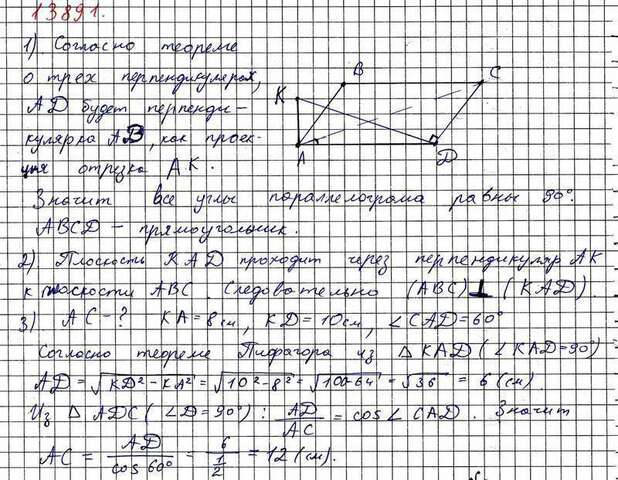 13891.
1) Согласно теореме
о трех перпендикулярах,
AD будет перпенди-
кулярка AB, как проек-
ция отрезка AK.
Значит все углы параллелограма равны 90°.
ABCD – прямоугольник.
2) Плоскость KAD проходит через перпендикуляр AK
к плоскости ABC. Следовательно (ABC) ⊥ (KAD).
3) AC - ? KA = 8 см, KD = 10 см, ∠CAD = 60°
Согласно теореме Пифагора из △ KAD (∠KAD = 90°)
AD = √KD² - KA² = √10² - 8² = √100 - 64 = √36 = 6 (см).
Из △ ADC (∠D = 90°) : AD/AC = cos ∠ CAD. Значит
AC = AD/cos 60° = 6/(1/2) = 12 (см).
K
B
C
A
D